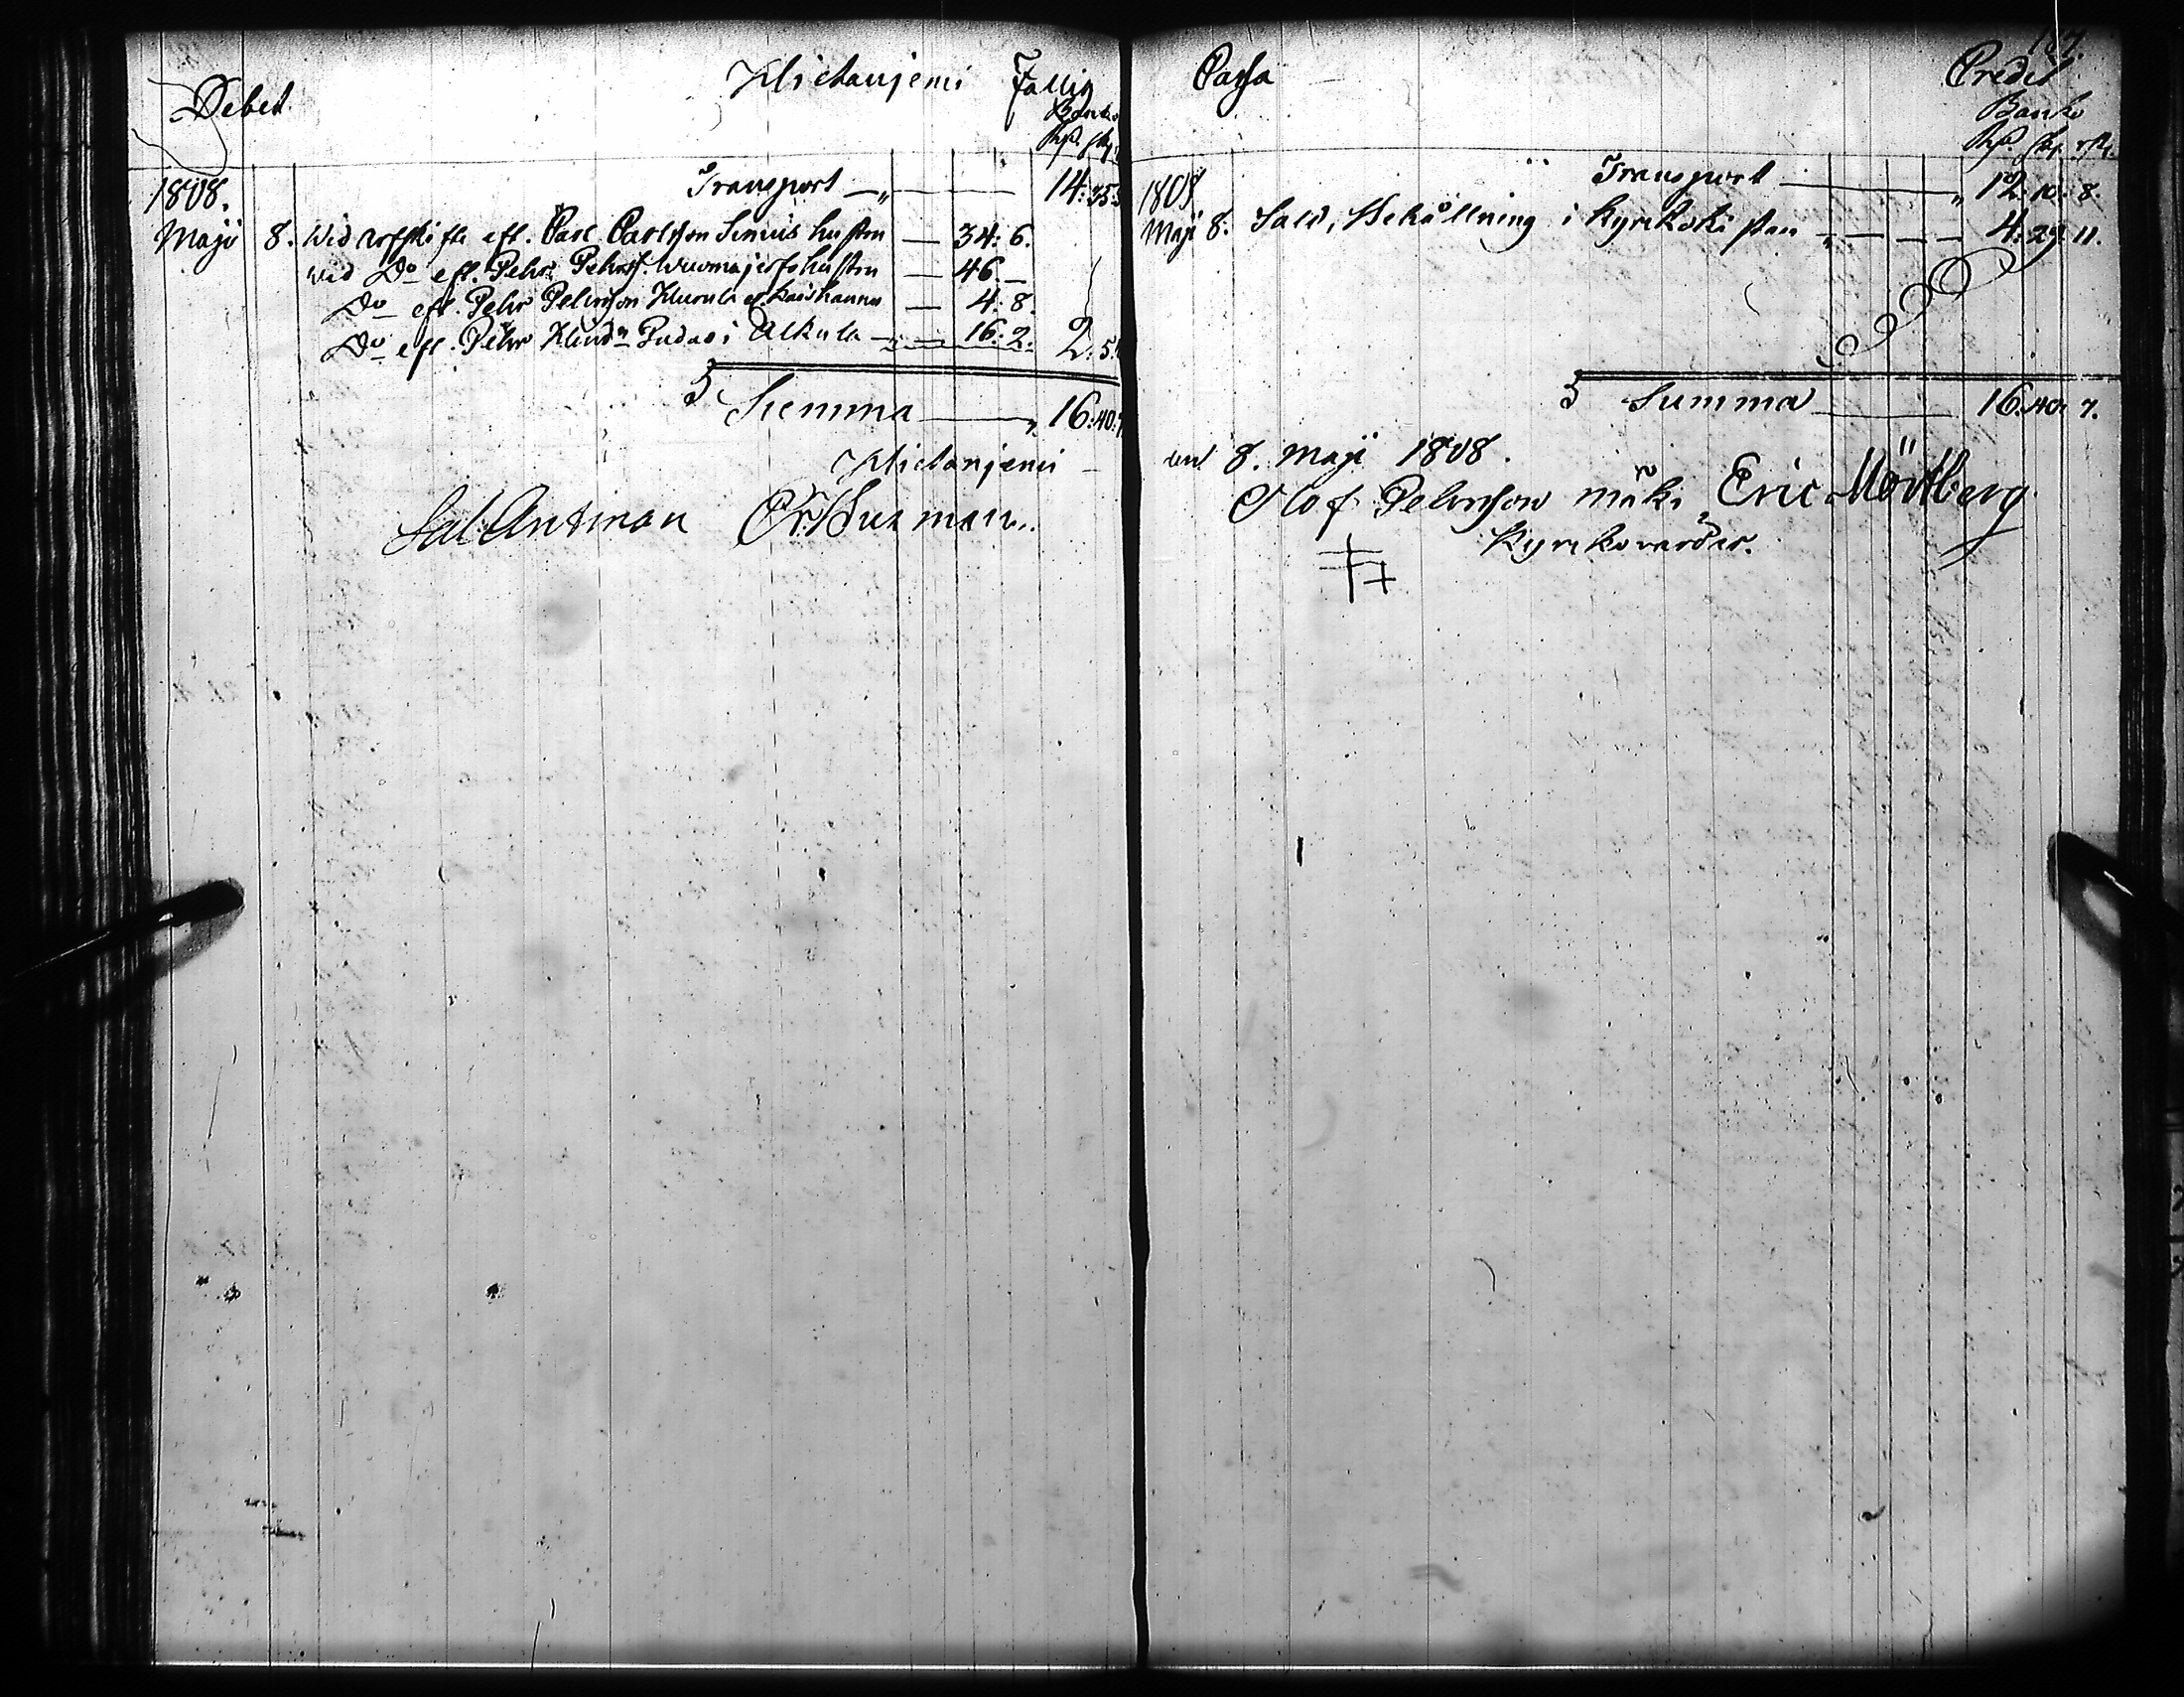 Debet Hietaniemi Fattig
Banko
Rd. sk.
1808. Transport — 14: 35:
Maji 8. Wid arfskifte eft. Carl Carlsson Simus hustru — 34: 6.
wid Do eft. Pehr Pehrss. hustru — 46 —
Do eft. Pehr Pehrsson — 4: 8.
Do eft. Pehr Pudas i Alkula — 16: 2. 2: 5:
Summa — 16: 40:
Hietaniemi
Sal: Antman Husman
Cassa Credit
Banko
Rd. sk. rst.
1808 Transport — 12: 10: 8.
Maji 8. Sald, Behållning i Kyrkokistan — 4: 29: 11.
Summa — 16: 40: 7.
den 8. Maji 1808.
Olof Pehrsson Mäki, Eric Mörtberg
Kyrkovärdar.